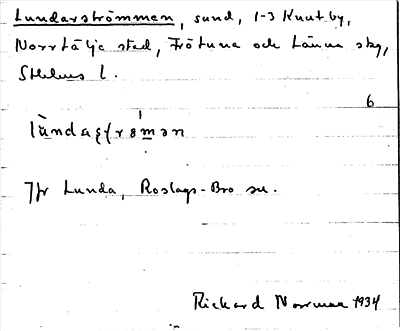 Lundarströmmen, sund, 1-3 Knutby,
Norrtälje stad, Frötuna och Länna skg,
Sthlms l.
6
Jfr Lunda, Roslags-Bro sn.
Rickard Norman 1934